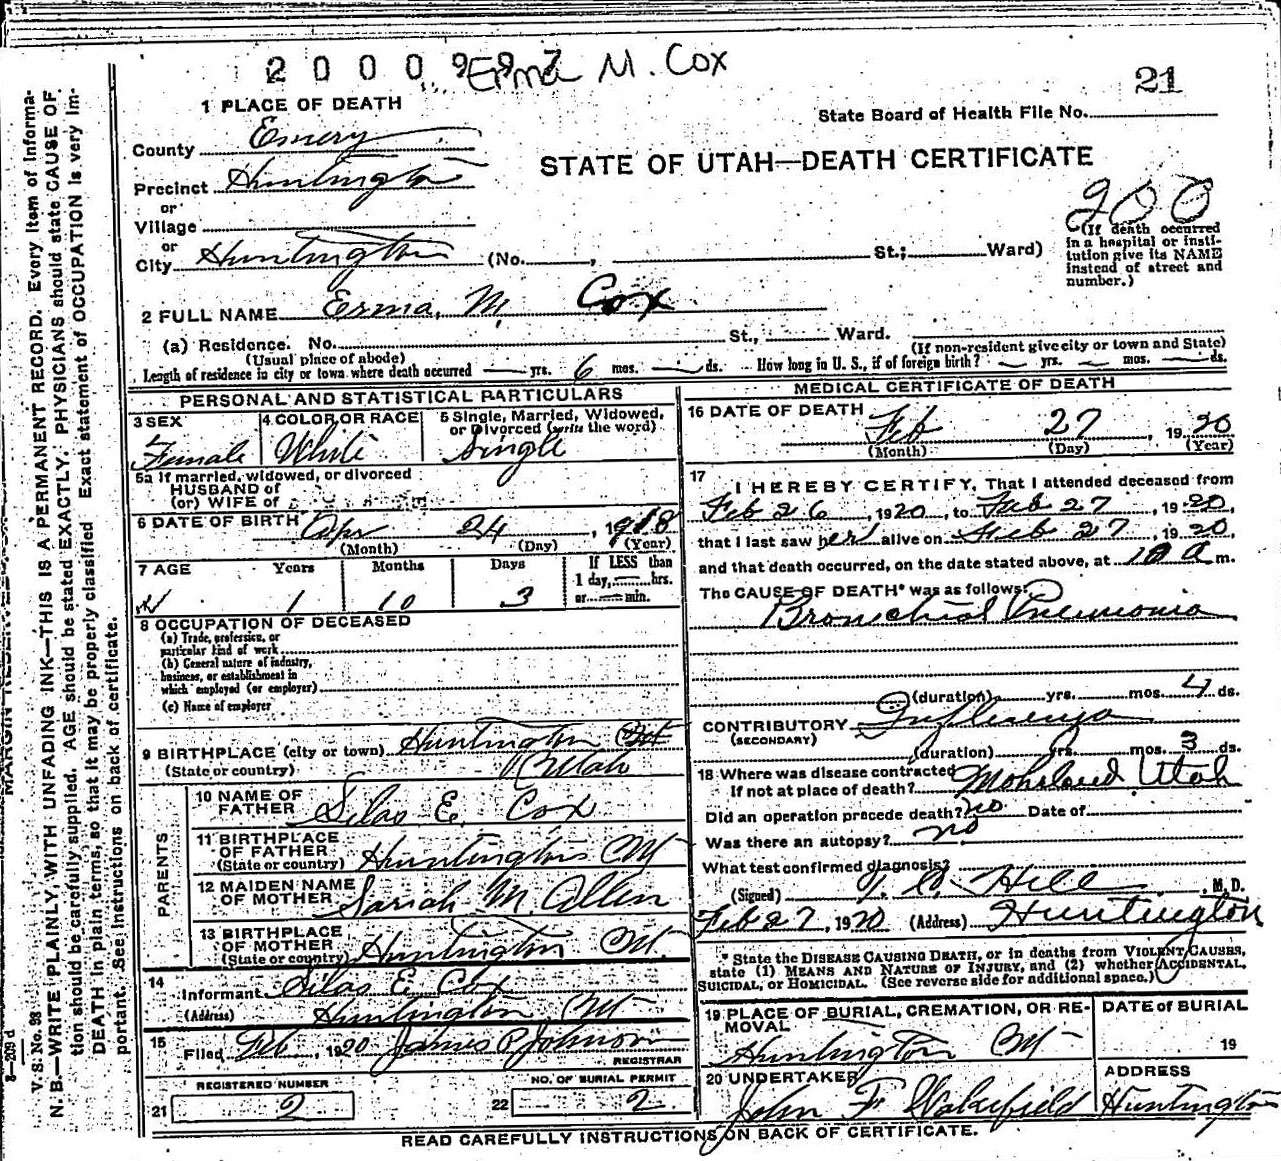 2 0 0 0 9 9 7 Erma M. Cox
21
State Board of Health File No.
1 PLACE OF DEATH
County Emery
STATE OF UTAH—DEATH CERTIFICATE
Precinct Huntington
or
Village
or
City Huntington (No. , St.; Ward)
200
(If death occurred
in a hospital or insti-
tution give its NAME
instead of street and
number.)
2 FULL NAME Erma, M. Cox
(a) Residence. No. St., Ward.
(Usual place of abode) (If non-resident give city or town and State)
Length of residence in city or town where death occurred — yrs. 6 mos. — ds. How long in U. S., if of foreign birth? — yrs. — mos. — ds.
PERSONAL AND STATISTICAL PARTICULARS
3 SEX Female
4 COLOR OR RACE White
5 Single, Married, Widowed,
or Divorced (write the word)
Single
5a If married, widowed, or divorced
HUSBAND of
(or) WIFE of
6 DATE OF BIRTH Apr 24, 1918
(Month) (Day) (Year)
7 AGE Years Months Days If LESS than
1 day, — hrs.
or — min.
1 10 3
8 OCCUPATION OF DECEASED
(a) Trade, profession, or
particular kind of work
(b) General nature of industry,
business, or establishment in
which employed (or employer)
(c) Name of employer
9 BIRTHPLACE (city or town) Huntington
(State or country) Utah
PARENTS
10 NAME OF
FATHER Silas E. Cox
11 BIRTHPLACE
OF FATHER
(State or country) Huntington Ut
12 MAIDEN NAME
OF MOTHER Sariah M. Allen
13 BIRTHPLACE
OF MOTHER
(State or country) Huntington Ut.
14
Informant Silas E. Cox
(Address) Huntington, Ut
15
Filed Feb, 1920 James P Johnson
REGISTRAR
REGISTERED NUMBER
21 2
NO. OF BURIAL PERMIT
22 2
MEDICAL CERTIFICATE OF DEATH
16 DATE OF DEATH
Feb 27, 1920
(Month) (Day) (Year)
17
I HEREBY CERTIFY, That I attended deceased from
Feb 26, 1920, to Feb 27, 1920,
that I last saw her alive on Feb 27, 1920,
and that death occurred, on the date stated above, at 10 a m.
The CAUSE OF DEATH* was as follows:
Bronchial Pneumonia
(duration) yrs. mos. 4 ds.
CONTRIBUTORY Influenza
(SECONDARY)
(duration) yrs. mos. 3 ds.
18 Where was disease contracted
If not at place of death? Mohrland Utah
Did an operation precede death? no Date of
Was there an autopsy? no
What test confirmed diagnosis?
(Signed) Hill, M. D.
Feb 27, 1920 (Address) Huntington
* State the DISEASE CAUSING DEATH, or in deaths from VIOLENT CAUSES,
state (1) MEANS AND NATURE OF INJURY, and (2) whether ACCIDENTAL,
SUICIDAL, or HOMICIDAL. (See reverse side for additional space.)
19 PLACE OF BURIAL, CREMATION, OR RE-
MOVAL
Huntington Ut
DATE OF BURIAL
19
20 UNDERTAKER
John F Wakefield
ADDRESS
Huntington
READ CAREFULLY INSTRUCTIONS ON BACK OF CERTIFICATE.
V. S. No. 98
N. B.—WRITE PLAINLY, WITH UNFADING INK—THIS IS A PERMANENT RECORD. Every item of informa-
tion should be carefully supplied. AGE should be stated EXACTLY. PHYSICIANS should state CAUSE OF
DEATH in plain terms, so that it may be properly classified. Exact statement of OCCUPATION is very im-
portant. See instructions on back of certificate.